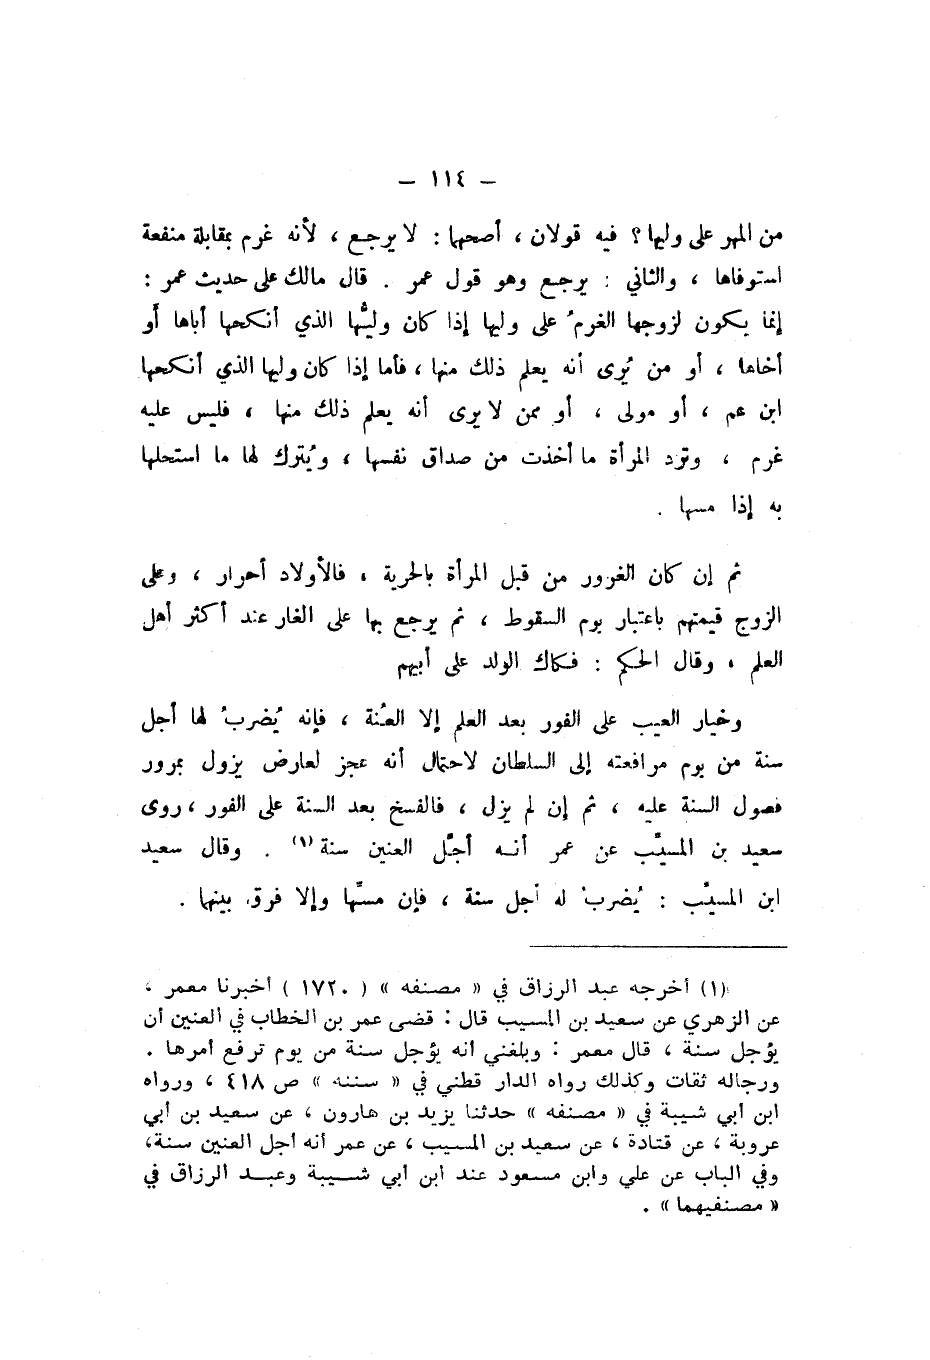 – ١١٤ –
من المهر على وليها ؟ فيه قولان ، أصحها : لا يرجع ، لأنه غرم بمقابلة منفعة
استوفاها ، والثاني : يرجع وهو قول عمر . قال مالك على حديث عمر :
إنما يكون لزوجها الغرمُ على وليها إذا كان وليُّها الذي أنكحها أباها أو
أخاها ، أو من يُرى أنه يعلم ذلك منها ، فأما إذا كان وليها الذي أنكحها
ابن عم ، أو مولى ، أو ممن لا يرى أنه يعلم ذلك منها ، فليس عليه
غرم ، وترد المرأة ما أخذت من صداق نفسها ، ويُترك لها ما استحلها
به إذا مسها .
ثم إن كان الغرور من قبل المرأة بالحرية ، فالأولاد أحرار ، وعلى
الزوج قيمتهم باعتبار يوم السقوط ، ثم يرجع بها على الغار عند أكثر أهل
العلم ، وقال الحكم : فكاك الولد على أبيهم
وخيار العيب على الفور بعد العلم إلا العُنة ، فإنه يُضربُ لها أجل
سنة من يوم مرافعته إلى السلطان لاحتمال أنه عجز لعارض يزول بمرور
فصول السنة عليه ، ثم إن لم يزل ، فالفسخ بعد السنة على الفور ، روى
سعيد بن المسيَّب عن عمر أنه أجَّل العنين سنة (١) . وقال سعيد
ابن المسيَّب : يُضربُ له أجل سنة ، فإن مسَّها وإلا فرق بينها .
(١) أخرجه عبد الرزاق في « مصنفه » ( ١٧٢٠ ) أخبرنا معمر ،
عن الزهري عن سعيد بن المسيب قال : قضى عمر بن الخطاب في العنين أن
يؤجل سنة ، قال معمر : وبلغني أنه يؤجل سنة من يوم ترفع أمرها .
ورجاله ثقات وكذلك رواه الدار قطني في « سننه » ص ٤١٨ ، ورواه
ابن أبي شيبة في « مصنفه » حدثنا يزيد بن هارون ، عن سعيد بن أبي
عروبة ، عن قتادة ، عن سعيد بن المسيب ، عن عمر أنه أجل العنين سنة،
وفي الباب عن علي وابن مسعود عند ابن أبي شيبة وعبد الرزاق في
« مصنفيهما » .